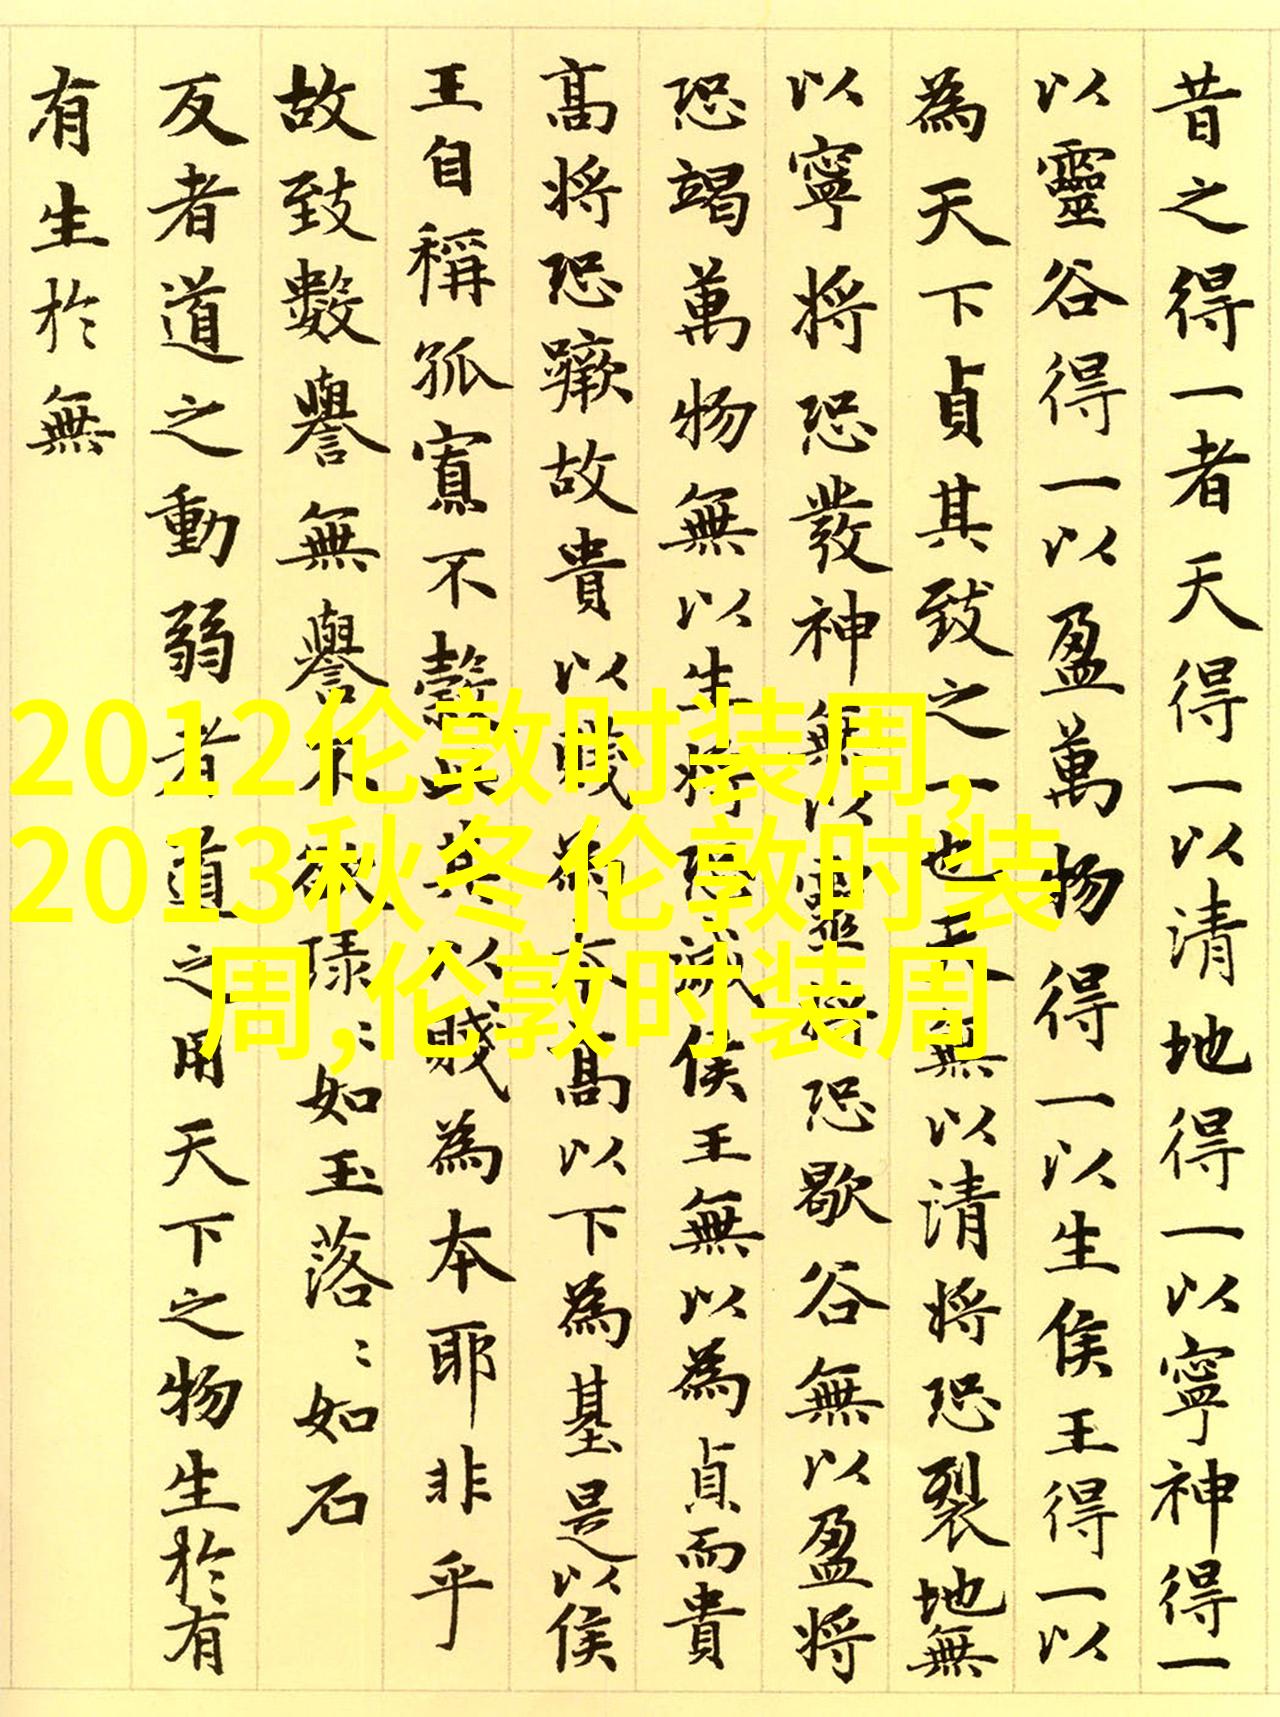 昔之得一者天得一以清地得一以寧神得一
以靈谷得一以盈萬物得一以生侯王得一以
為天下貞其致之一也天無以清將恐裂地無
以寧將恐發神無以靈將恐歇谷無以盈將
恐竭萬物無以生將恐滅侯王無以為貞而貴
高將恐蹶故貴以賤為本高以下為基是以侯
王自稱孤寡不轂此其以賤為本耶非乎
故致數譽無譽不欲琭〻如玉落〻如石
反者道之動弱者道之用天下之物生於有
有生於無
2012伦敦时装周,
2013秋冬伦敦时装
周,伦敦时装周